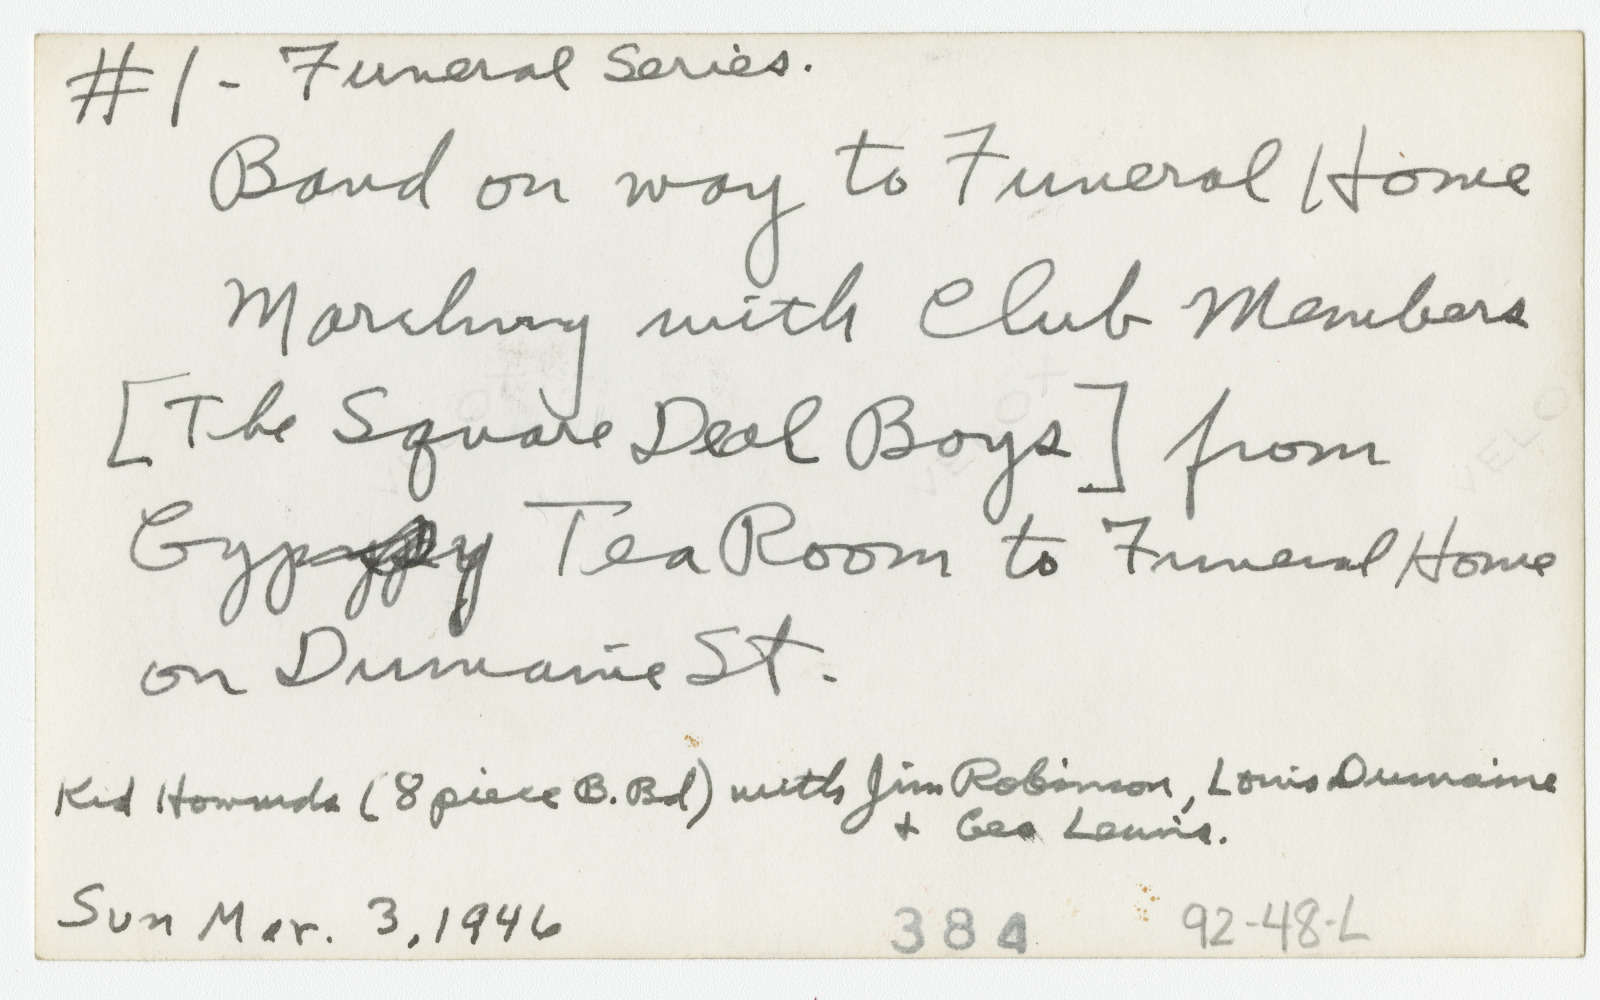 #1 - Funeral Series.
Band on way to Funeral Home
Marching with Club Members
[The Square Deal Boys] from
Gypsy Tea Room to Funeral Home
on Dumaine St.
Kid Howards (8 piece B. Bd) with Jim Robinson, Louis Dumaine
+ Geo Lewis.
Sun Mar. 3, 1946
384
92-48-L
VELOX
VELOX
VELO